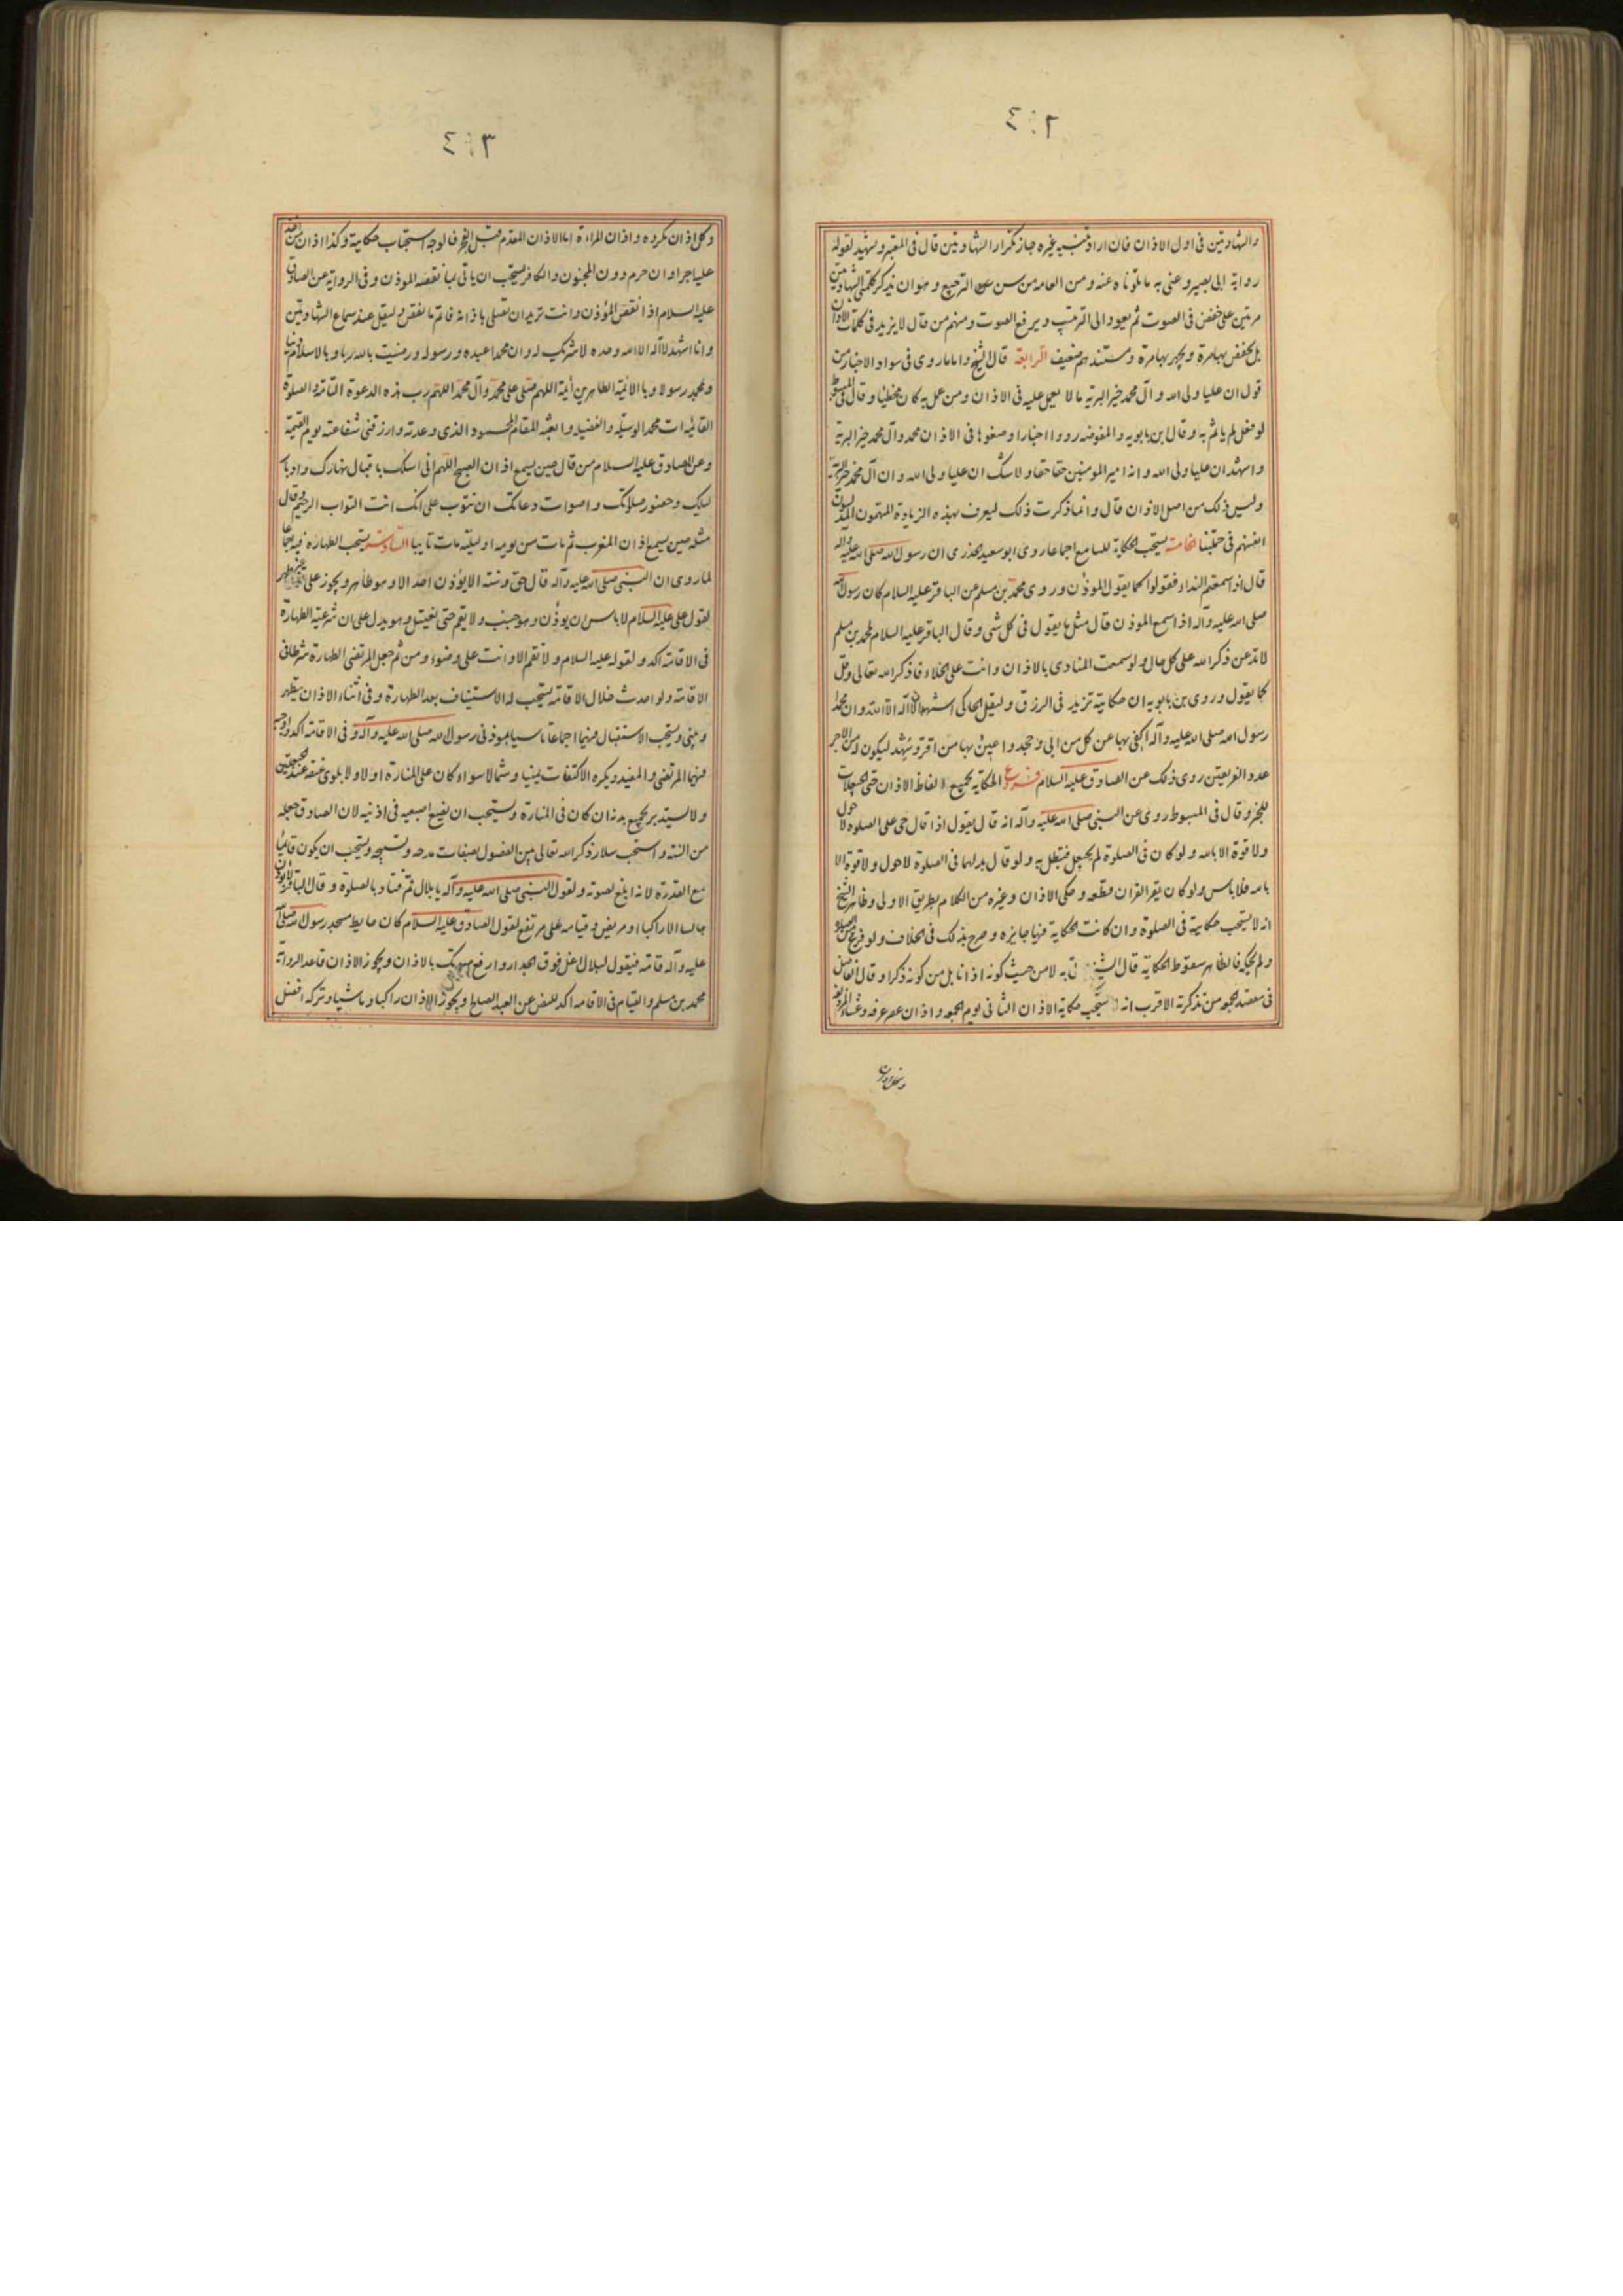 ٤٠٢
والشهادتين فى اول الاذان فان اراد تنبيه غيره جاز تكرار الشهادتين قال فى المعتبر ويشهد لقوله
رواية ابى بصير وعنى به ما تلوناه عنه ومن العامه من سن الترجيع وهو ان يذكر كلمتى الشهادتين
مرتين على خفض فى الصوت ثم يعود الى الترتيب ويرفع الصوت ومنهم من قال لا يزيد فى كلمات الاذان
بل يخفض بها مرة ويجهر بها مرة ومستندهم ضعيف الرابعة قال الشيخ واما ما روى فى شواذ الاخبار من
قول ان عليا ولى الله وآل محمد خير البرية مما لا يعمل عليه فى الاذان ومن عمل به كان مخطيا وقال فى المبسوط
لو فعل لم ياثم به وقال بن بابويه والمفوضه رووا اخبارا وضعوها فى الاذان محمد وآل محمد خير البرية
واشهد ان عليا ولى الله وانه امير المومنين حقا حقا ولا شك ان عليا ولى الله وان آل محمد خير البرية
وليس ذلك من اصل الاذان قال وانما ذكرت ذلك ليعرف بهذه الزيادة المتهمون المدلسون
انفسهم فى جملتنا الخامسة يستحب الحكاية للسامع اجماعا روى ابو سعيد الخدرى ان رسول الله صلى الله عليه وآله
قال اذا سمعتم النداء فقولوا كما يقول الموذن وروى محمد بن مسلم عن الباقر عليه السلام كان رسول الله
صلى الله عليه وآله اذا سمع الموذن قال مثل ما يقول فى كل شى وقال الباقر عليه السلام لمحمد بن مسلم
لا تدعن ذكر الله على كل حال ولو سمعت المنادى بالاذان وانت على الخلاء فاذكر الله تعالى وقل
كما يقول وروى بن بابويه ان حكايته تزيد فى الرزق وليقل الحاكى اشهد ان لا آله الا الله وان محمدا
رسول الله صلى الله عليه وآله اكفى بها عن كل من ابى وجحد واعين بها من اقر وشهد ليكون له من الاجر
عدد الفريقين روى ذلك عن الصادق عليه السلام فروع الحكاية لجميع الفاظ الاذان حتى الحيعلات
للخبر وقال فى المبسوط روى عن النبى صلى الله عليه وآله انه قال يقول اذا قال حى على الصلوة لا حول
ولا قوة الا بالله ولو كان فى الصلوة لم يحيعل فتبطل به ولو قال بدلها فى الصلوة لا حول ولا قوة الا
بالله فلا باس ولو كان يقر القران قطعه وحكى الاذان وغيره من الكلام بطريق الاولى وظاهر الشيخ
انه لا يستحب حكايته فى الصلوة وان كانت الحكاية فيها جايزه وصرح بذلك فى الخلاف ولو فرغ من الصلوة
ولم يحكه فالظاهر سقوط الحكاية قال الشيخ به لا من حيث كونه اذانا بل من كونه ذكرا وقال الفاضل
فى تذكرته الاقرب انه يستحب حكاية الاذان الثانى يوم الجمعه واذان عصر عرفه وعشاء المزدلفه
٤٠٣
وكل اذان مكروه واذان المراة اما الاذان المقدم قبل الفجر فالوجه استحباب حكايته وكذا اذان من اخذ
عليه اجرا وان حرم دون المجنون والكافر يستحب ان ياتى بما نقصه الموذن وفى الرواية عن الصادق
عليه السلام اذا نقص المؤذن وانت تريد ان تصلى باذانه فاتم ما نقص وليقل عند سماع الشهادتين
وانا اشهد ان لا آله الا الله وحده لا شريك له وان محمدا عبده ورسوله ورضيت بالله ربا وبالاسلام دينا
وبمحمد رسولا وبالائمة الطاهرين أئمة اللهم صلى على محمد وآل محمد اللهم رب هذه الدعوة التامة والصلوة
القائمه ات محمدا الوسيله والفضيله وابعثه المقام المحمود الذى وعدته وارزقنى شفاعته يوم القيمة
وعن الصادق عليه السلام من قال حين يسمع اذان الصبح اللهم انى اسئلك باقبال نهارك وادبار
ليلك وحضور صلاتك واصوات دعاتك ان تتوب على انك انت التواب الرحيم وقال
مثله حين يسمع اذان المغرب ثم مات من يومه او ليلته مات تايبا السادسة يستحب الطهاره فيه اجماعا
لما روى ان النبى صلى الله عليه وآله قال حق وسنته الا يؤذن احد الا وهو طاهر ويجوز على غير طهر
لقول على عليه السلام لا باس ان يوذن وهو جنب ولا يقم حتى يغتسل وهو يدل على ان شرعية الطهارة
فى الاقامه آكد ولقوله عليه السلام ولا تقم الا وانت على وضوء ومن ثم جعل المرتضى الطهارة شرطا فى
الاقامه ولو احدث خلال الاقامة يستحب له الاستيناف بعد الطهارة وفى اثناء الاذان يتطهر
ويبنى ويستحب الاستقبال فيهما اجماعا تاسيا بموذنى رسول الله صلى الله عليه وآله وفى الاقامة آكد واوجبه
فيهما المرتضى والمفيد ويكره الالتفات يمينا وشمالا سواء كان على المنارة او لا ولا يلوى عنقه عند الحيعلتين
ولا يستدير بجميع بدنه ان كان فى المنارة ويستحب ان يضع اصبعيه فى اذنيه لان الصادق جعله
من السنه واستحب سلار ذكر الله تعالى بين الفصول بصفات مدحه وتسبيحه ويستحب ان يكون قائما
مع القدرة لانه ابلغ لصوته ولقول النبى صلى الله عليه وآله يا بلال قم فناد بالصلوة وقال الباقر لا يؤذن
جالسا الا راكبا او مريض وقيامه على مرتفع لقول الصادق عليه السلام كان حايط مسجد رسول الله صلى الله
عليه وآله قامه فيقول لبلال اعل فوق الجدار وارفع صوتك بالاذان ويجوز الاذان قاعدا لرواية
محمد بن مسلم والقيام فى الاقامه آكد للنص عن العبد الصالح ويجوز الاذان راكبا وماشيا وتركه افضل